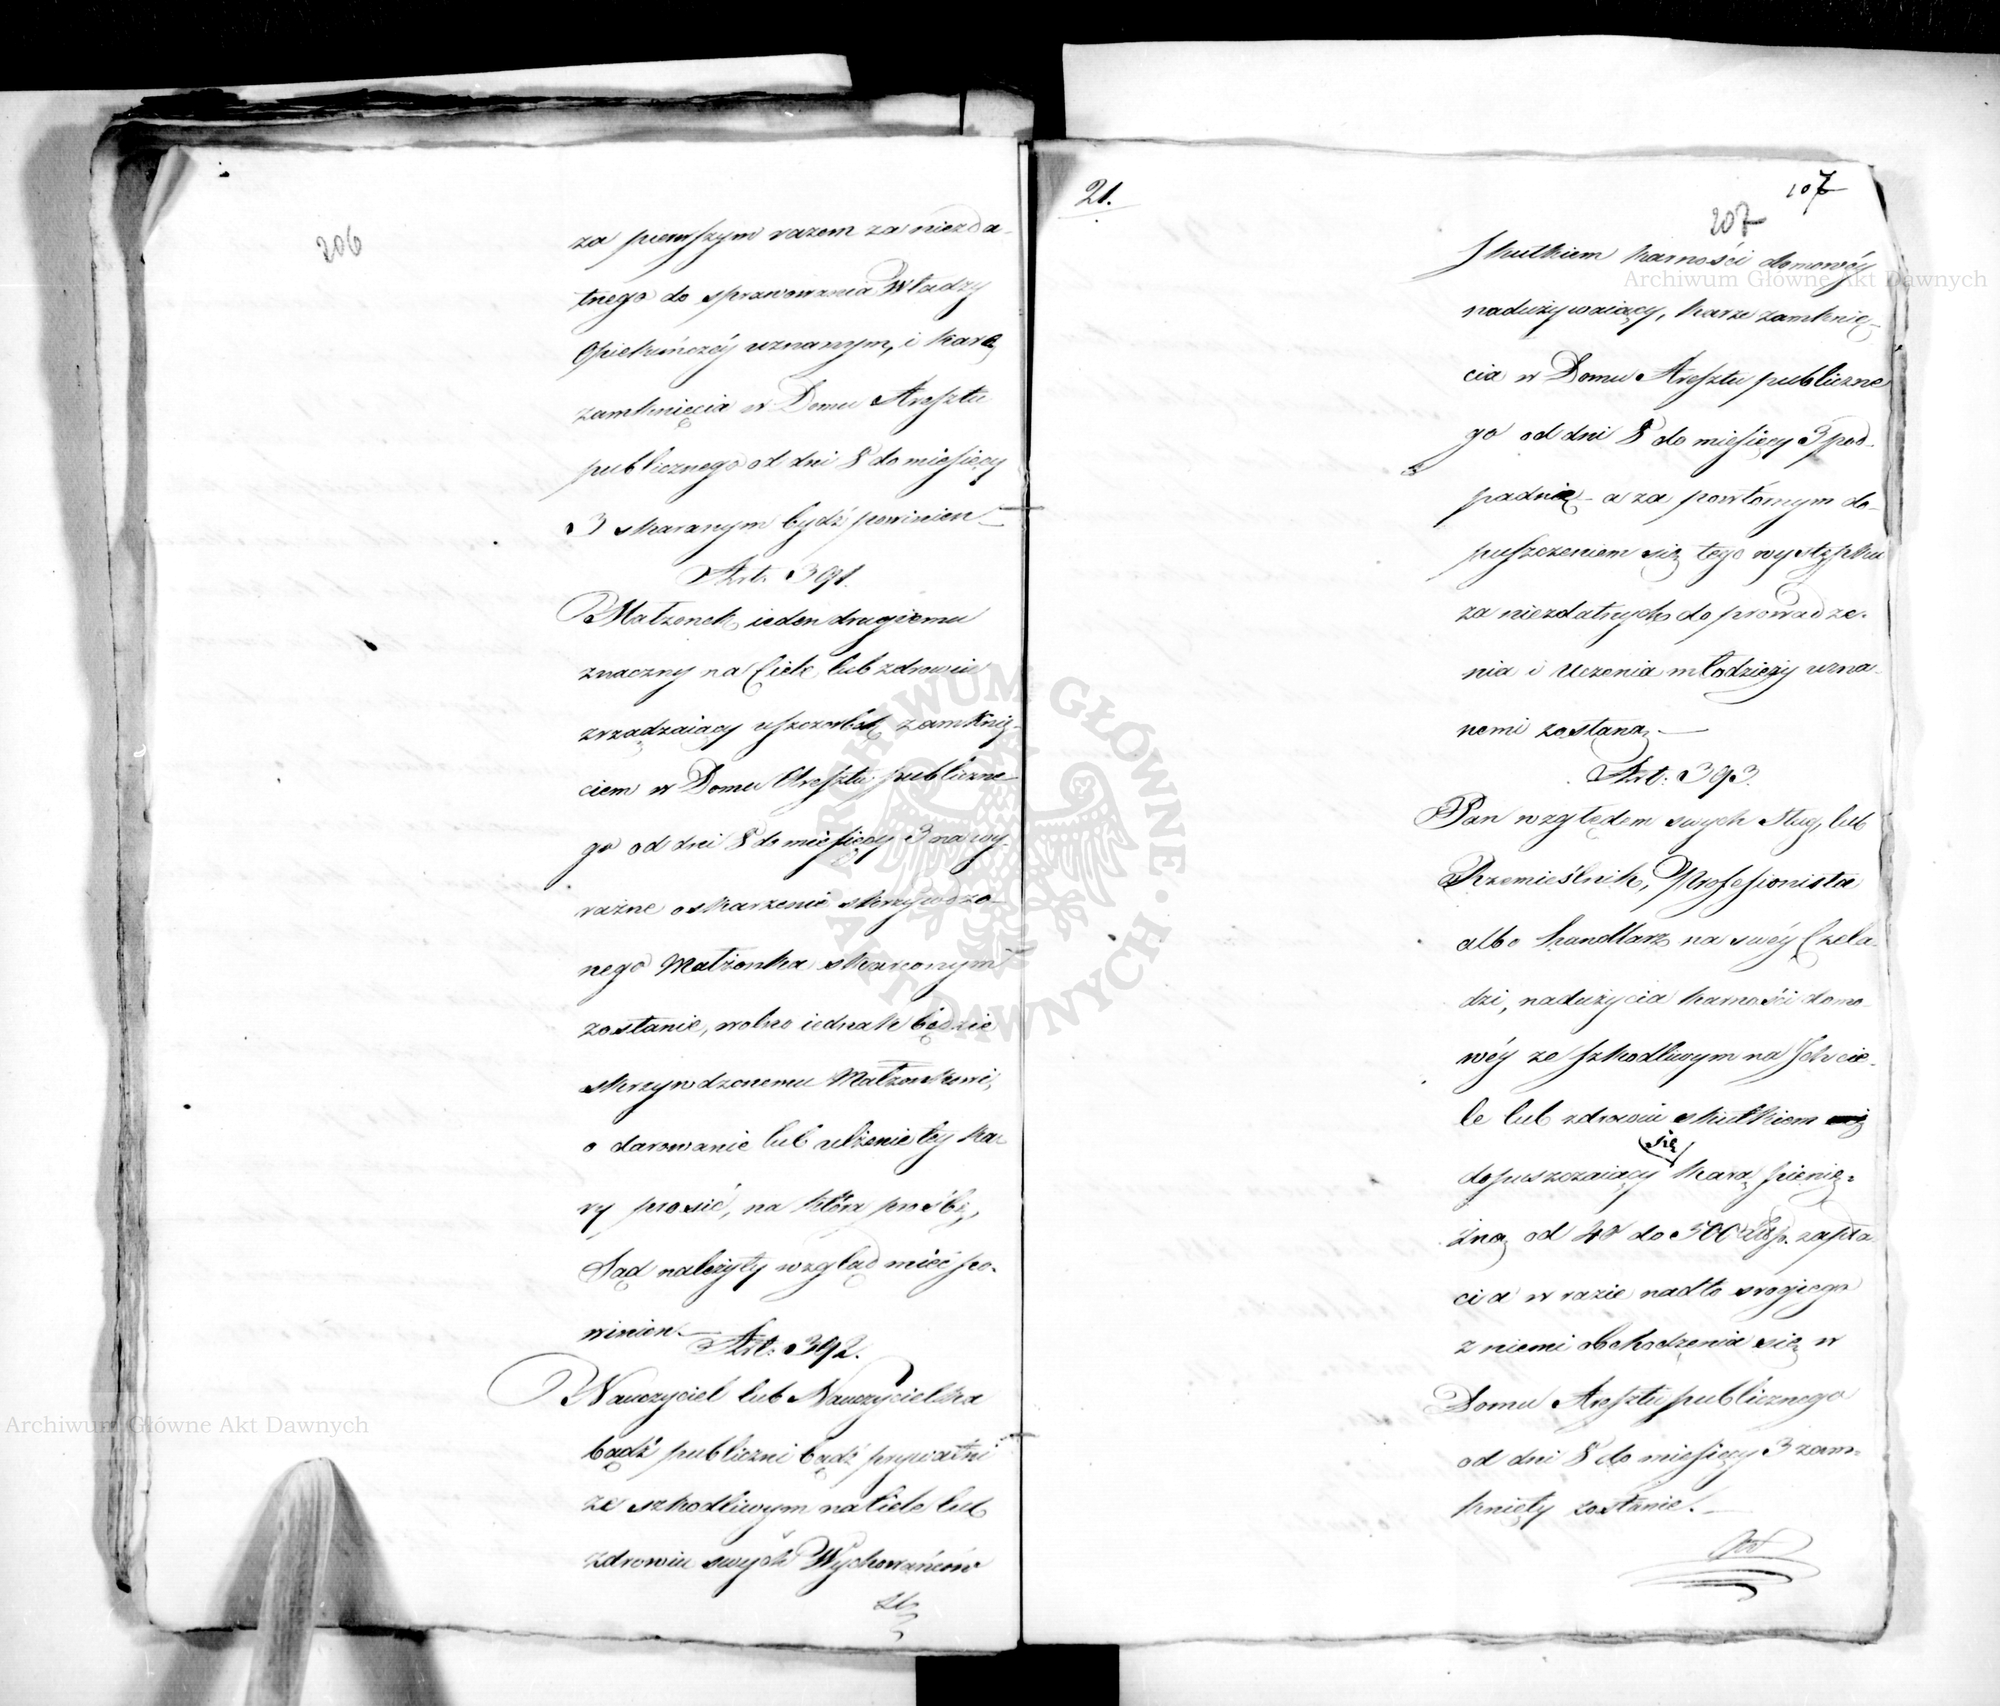 206
za pierwszym razem za niezda-
tnego do sprawowania Władzy
Opiekuńczéy uznanym, i karą
zamknięcia w Domu Aresztu
publicznego od dni 8 do miesięcy
3 skaranym bydź powinien —
Art. 391.
Małzonek ieden drugiemu
znaczny na Ciele lub zdrowiu
zrządzaiący uszczerbek zamknię-
ciem w Domu Aresztu publiczne-
go od dni 8 do miesięcy 3 na wy-
raźne oskarzenie skrzywdzo-
nego Małżonka skarconym
zostanie, wolno iednak będzie
skrzywdzonemu Małzonkowi,
o darowanie lub ulżenie tey ka-
ry prosić, na którą prośbę,
Sąd należyty wzgląd mieć po-
winien. —
Art. 392.
Nauczyciel lub Nauczycielka
bądź publiczni bądź prywatni
ze szkodliwym na ciele lub
zdrowiu swych Wychowańców
21.
107
207
skutkiem karności domowéy
nadużywaiący, karze zamknię-
cia w Domu Aresztu publiczne
go od dni 8 do miesięcy 3 pod-
padnie - a za powtórnym do-
puszczeniem się tego występku
za niezdatnych do prowadze-
nia i Uczenia młodzieży uzna-
nemi zostaną —
Art. 393.
Pan względem swych sług, lub
Rzemieślnik, Professionista
albo handlarz na swéy Czela-
dzi, nadużycia karności domo-
wéy ze szkodliwym na Ich cie-
le lub zdrowiu skutkiem
się
dopuszczaiący karą pienię-
żną od 40 do 500 Złp. zapła
ci a w razie nadto srogiego
z niemi obchodzenia się w
Domu Aresztu publicznego
od dni 8 do miesięcy 3 zam-
knięty zostanie. —
Art
Archiwum Główne Akt Dawnych
Archiwum Główne Akt Dawnych
ARCHIWUM GŁÓWNE · AKT DAWNYCH ·